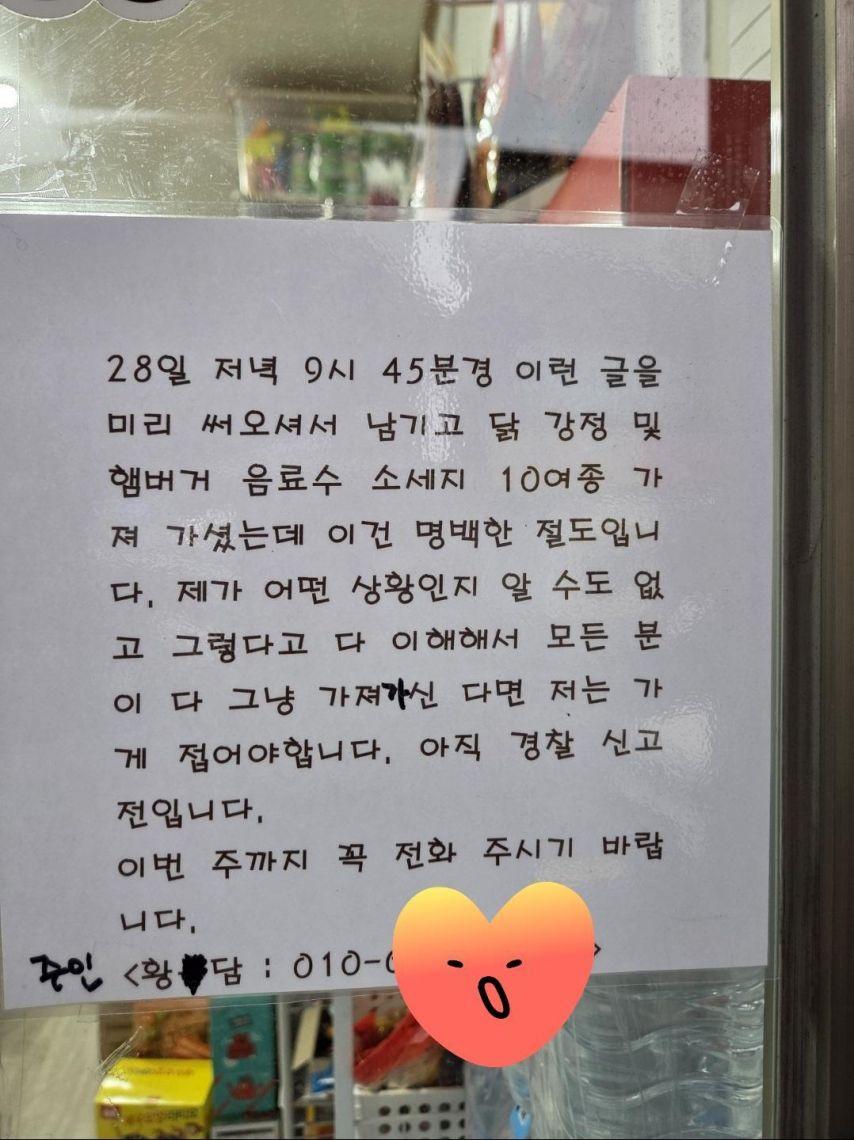 28일 저녁 9시 45분경 이런 글을
미리 써오셔서 남기고 닭 강정 및
햄버거 음료수 소세지 10여종 가
져 가셨는데 이건 명백한 절도입니
다. 제가 어떤 상황인지 알 수도 없
고 그렇다고 다 이해해서 모든 분
이 다 그냥 가져가신 다면 저는 가
게 접어야합니다. 아직 경찰 신고
전입니다.
이번 주까지 꼭 전화 주시기 바랍
니다.
주인 <황 담 : 010- >